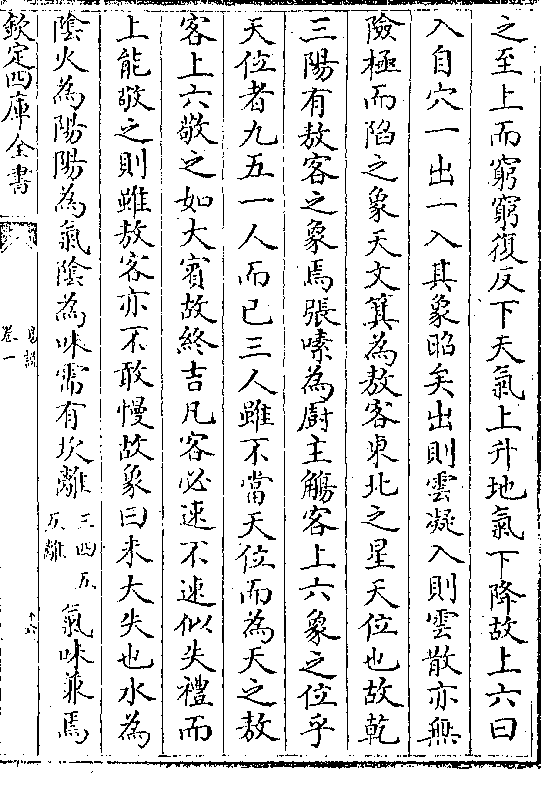 之至上而窮窮復反下天氣上升地氣下降故上六曰
入自穴一出一入其象昭矣出則雲凝入則雲散亦無
險極而陷之象天文箕為敖客東北之星天位也故乾
三陽有敖客之象焉張嗉為厨主觴客上六象之位乎
天位者九五一人而已三人雖不當天位而為天之敖
客上六敬之如大賓故終吉凡客必速不速似失禮而
上能敬之則雖敖客亦不敢慢故象曰未大失也水為
陰火為陽陽為氣陰為味需有坎離三四五互離氣味兼焉
欽定四庫全書
易說
卷一
十六